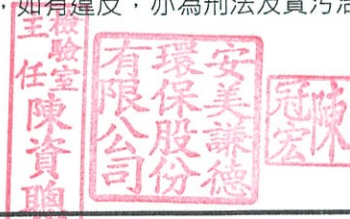 ，如有違反，亦為刑法及貪污治
檢驗室
主任
陳資聰
安美謙德
環保股份
有限公司
陳
冠宏